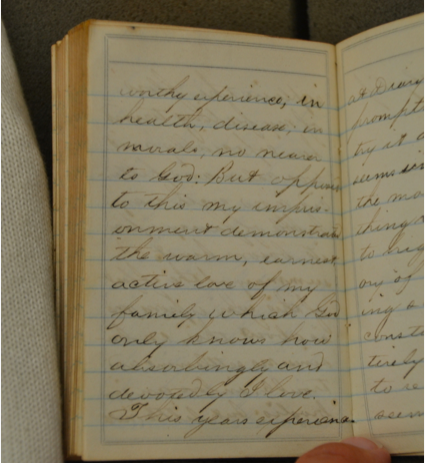 worthy experience, in
health, disease, in
morals, no nearer
to God: But opposed
to this my impris-
onment demonstrates
the warm, earnest
active love of my
family which God
only knows how
absorbingly and
devotedly I love.
This years experience
at Diary
prompt
try it a
seems
the mo
thing
to
ory of
ing a
const
tirely
to re
seem